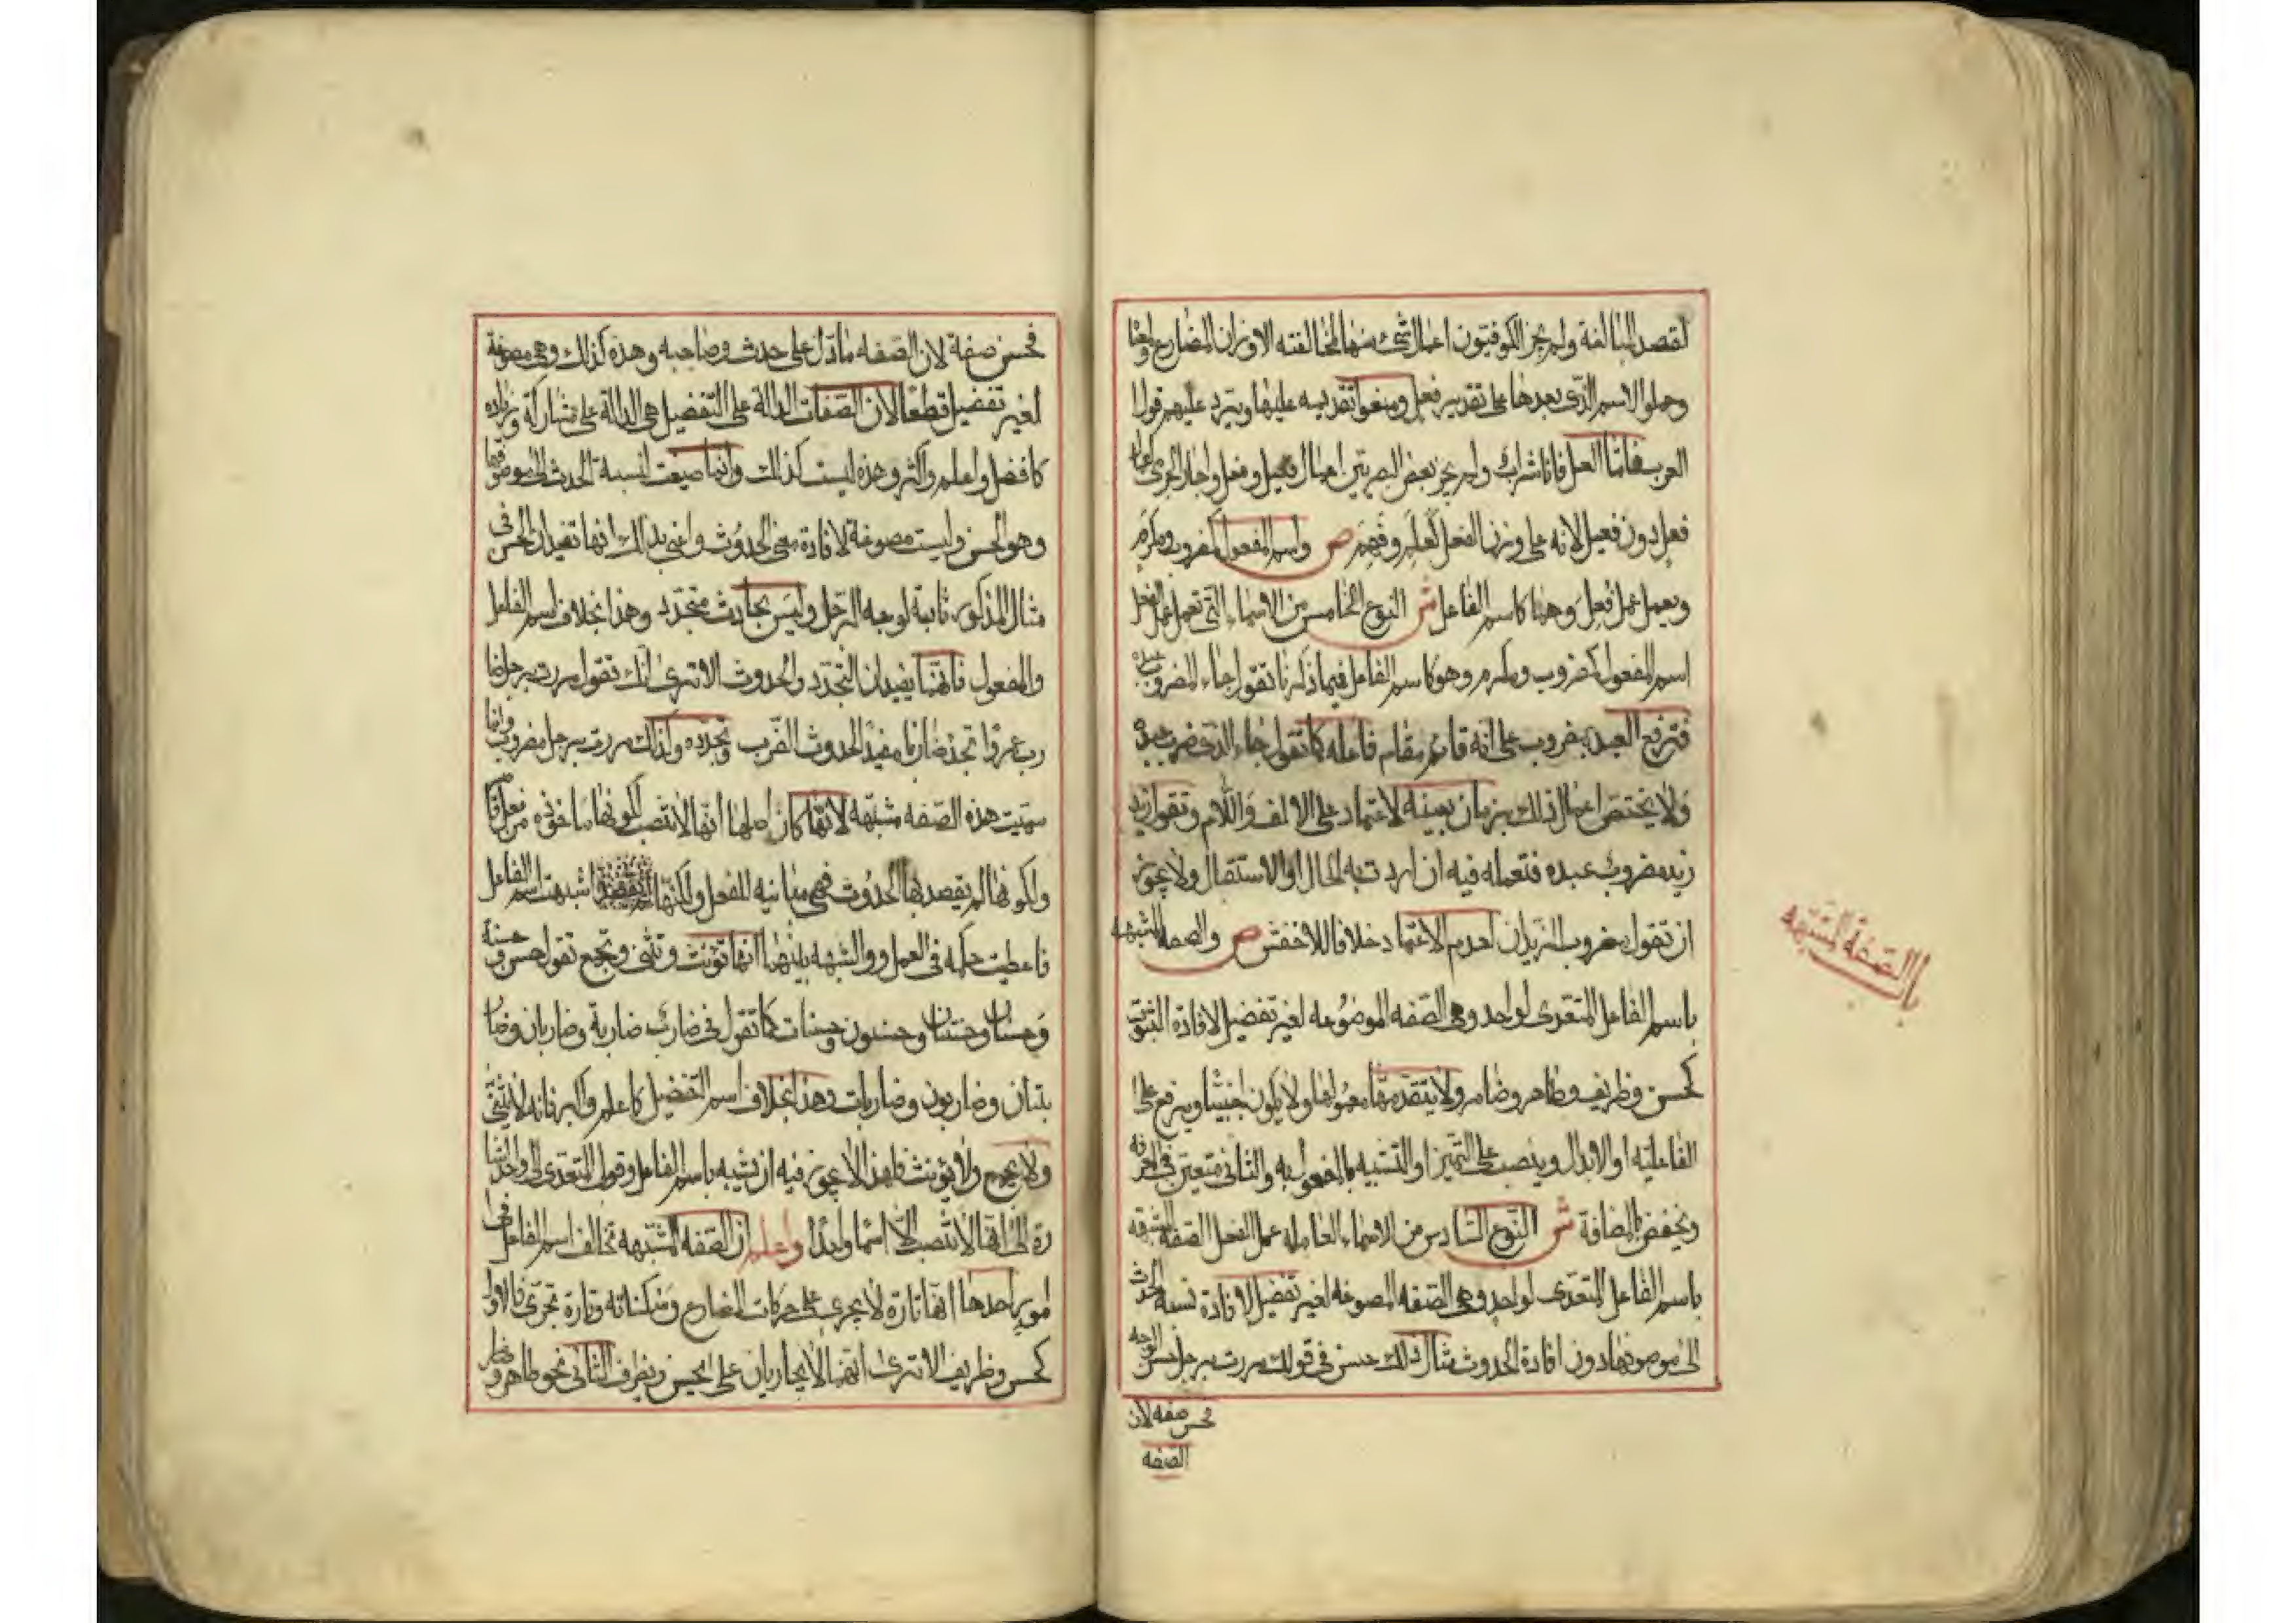 لقصد المبالغة ولم يجز الكوفيون اعمال شئ منها لمخالفته الاوزان المضارع ولمعنا
وحملوا الاسم الذى بعدها على تقدير فعل ومنعوا تقديمه عليها ويرد عليهم قول
العرب فامّا العسل فانا شراب ولم يجز بعض البصريين اعمال فعيل وفعل واجاز الجرمى اعمال
فعل دون فعيل لانه على وزن الفعل كعلم وفهم ص واسم المفعول كمضروب ومكرم
ويعمل عمل فعله وهنا كاسم الفاعل ش النوع الخامس من الاسماء التى تعمل عمل الفعل
اسم المفعول كمضروب ومكرم وهو كاسم الفاعل فيما ذكرنا تقول جاء المضروب عبده
فترفع العبد بمضروب على انه قائم مقام فاعله كما تقول جاء الذى ضرب عبده
ولا يختص اعمال ذلك بزمان بعينه لاعتماد على الالف واللام وتقول زيد
زيد مضروب عبده فتعمله فيه ان اردت به الحال او الاستقبال ولا يجوز
ان تقول مضروب الزيدان لعدم الاعتماد خلافا للاخفش ص والصفة المشبهه
باسم الفاعل المتعدى لواحد وهى الصفه الموضوعه لغير تفضيل لافادة الثبوت
كحسن وظريف وطاهر وضامر ولا يتقدمها معمولها ولا يكون اجنبيّا ويرفع على
الفاعليه او الابدال وينصب على التميز او التشبيه بالمفعول به والثانى متعين فى المعرفه
ويخفض بالاضافة ش النّوع السّادس من الاسماء العامله عمل الفعل الصفه المشبهه
باسم الفاعل المتعدى لواحد وهى الصفه المصوغه لغير تفضيل لافادة نسبه الحدث
الى موصوفها دون افادة الحدوث مثال ذلك حسن فى قولك مررت برجل حسن الوجه
فحسن صفه لان
الصفه
باب الصّفة المشبّهه
فحسن صفة لان الصّفه مادّل على حدث وصاحبه وهذه كذلك وهى مصوغة
لغير تفضيل قطعا لان الصّفات الدالة على التّفضيل هى الدالة على مشاركة وزياده
كافضل واعلم واكثر وهذه ليست كذلك وانما صيغت لنسبة الحدث الى موصوفها
وهو الحسن وليست مصوغة لافادة معنى الحدوث واعنى بذلك انها تفيد ان الحسن فى
مثال المذكور ثابتة لوجه الرّجل وليس بحادث متجدّد وهذا بخلاف اسم الفاعل
والمفعول فانّهما يفيدان التجدّد والحدوث الا ترى انّك تقول مررت برجل ضا
رب عمرواً تجد ضاربا مفيدًا لحدوث الضّرب وتجدّده وكذلك مررت برجل مضروب وانما
سمّيت هذه الصّفه مشبّهه لانّها كان اصلها انّها لا تنتصب لكونها مأخوذه من فعل قاصر
ولكونها لم يقصد بها الحدوث فهى مباينه للفعل ولكنّها اشبهت اسم الفاعل
فاعطيت حكمه فى العمل ووالشبهه بينهما انّها تؤنث وتثنى وتجمع تقول حسن وحسنة
وحسنان وحسنتان وحسنون وحسنات كما تقول فى ضارب ضاربة وضاربان وضار
بتان وضاربون وضاربات وهذا بخلاف اسم التّفضيل كاعلم واكبر فانه لا يثنّى
ولا يجمع ولا يؤنث فلهذا لا يجوز فيه ان يشبه باسم الفاعل وقولى المتعدى الى واحد اشا
رة الى انّها لا تنتصب الّا اسمًا واحدًا واعلم ان الصّفه المشبهه تخالف اسم الفاعل فى
امور احدها انّها تارة لا يجرى على حركات المضارع وسكناته وتارة تجرى فالاول
كحسن وظريف الا ترى انّهما لا يجاريان على يحسن ويظرف الثانى نحو طاهر وضامر